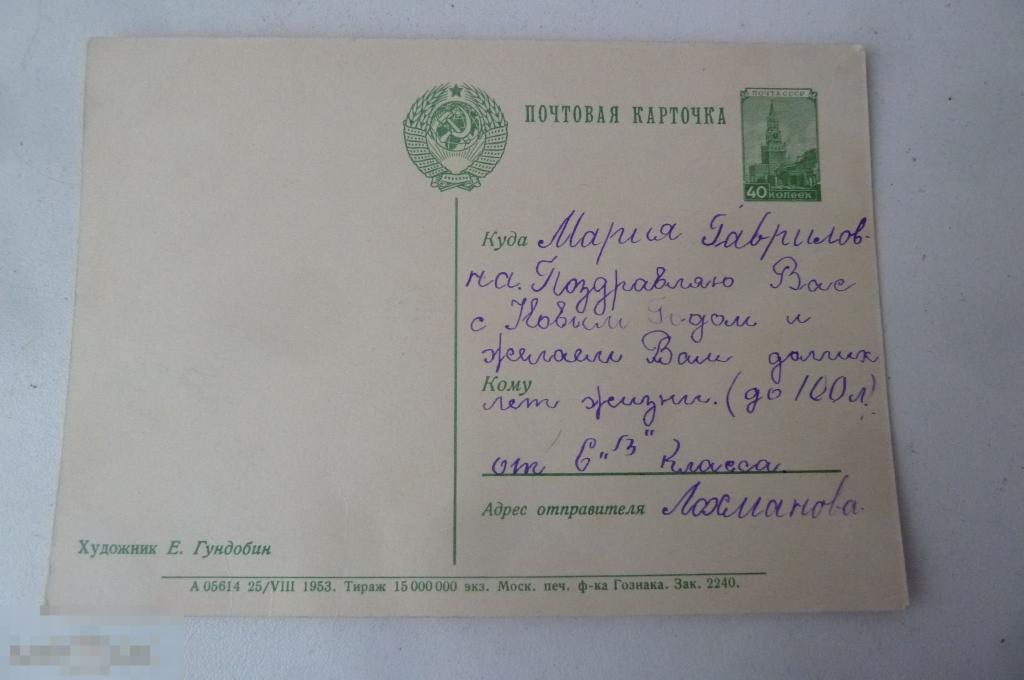 ПОЧТОВАЯ КАРТОЧКА
ПОЧТА СССР
40 КОПЕЕК
Куда Мария Гаврилов-
на. Поздравляю Вас
с Новым Годом и
желаем Вам долгих
Кому
лет жизни. (до 100 л.)
от 6 „В" класса.
Адрес отправителя Лохманова.
Художник Е. Гундобин
А 05614 25/VIII 1953. Тираж 15 000 000 экз. Моск. печ. ф-ка Гознака. Зак. 2240.